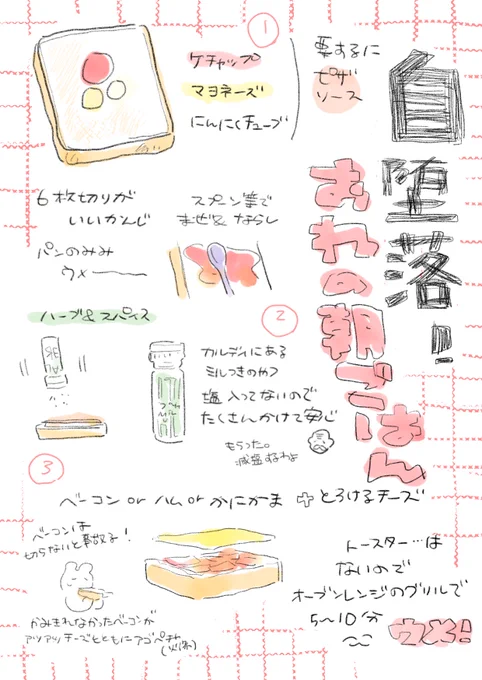 自堕落!
おれの朝ごはん
①
ケチャップ
マヨネーズ
にんにくチューブ
要するに
ピザ
ソース
6枚切りが
いいかんじ
パンのみみ
ウメ〜
スプーン等で
まぜ&ならし
②
ハーブ&スパイス
カルディにある
ミルつきのやつ
塩入ってないので
たくさんかけて安心
もらった。
減塩するわよ
③
ベーコン or ハム or かにかま + とろけるチーズ
ベーコンは
切らないと暴散る!
かみきれなかったベーコンが
アツアツチーズとともにアゴペチャ
トースター…は
ないので
オーブンレンジのグリルで
5〜10分
ウメ!